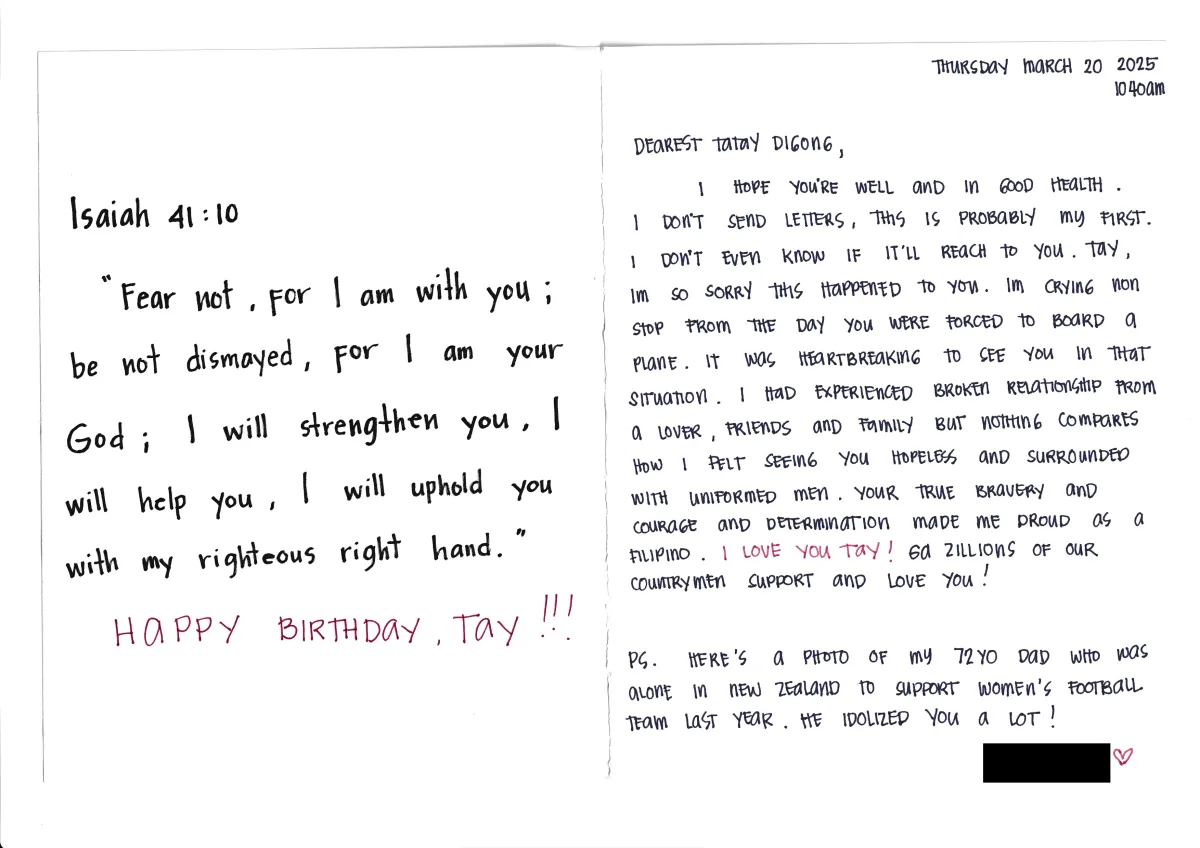 Isaiah 41:10
"Fear not, for I am with you;
be not dismayed, for I am your
God; I will strengthen you, I
will help you, I will uphold you
with my righteous right hand."
HAPPY BIRTHDAY, TAY !!!
THURSDAY MARCH 20 2025
1040am
DEAREST TATAY DIGONG,
I HOPE YOU'RE WELL AND IN GOOD HEALTH.
I DON'T SEND LETTERS, THIS IS PROBABLY MY FIRST.
I DON'T EVEN KNOW IF IT'LL REACH TO YOU. TAY,
IM SO SORRY THIS HAPPENED TO YOU. IM CRYING NON
STOP FROM THE DAY YOU WERE FORCED TO BOARD A
PLANE. IT WAS HEARTBREAKING TO SEE YOU IN THAT
SITUATION. I HAD EXPERIENCED BROKEN RELATIONSHIP FROM
A LOVER, FRIENDS AND FAMILY BUT NOTHING COMPARES
HOW I FELT SEEING YOU HOPELESS AND SURROUNDED
WITH UNIFORMED MEN. YOUR TRUE BRAVERY AND
COURAGE AND DETERMINATION MADE ME PROUD AS A
FILIPINO. I LOVE YOU TAY! GAZILLIONS OF OUR
COUNTRYMEN SUPPORT AND LOVE YOU!
PS. HERE'S A PHOTO OF MY 72YO DAD WHO WAS
ALONE IN NEW ZEALAND TO SUPPORT WOMEN'S FOOTBALL
TEAM LAST YEAR. HE IDOLIZED YOU A LOT!